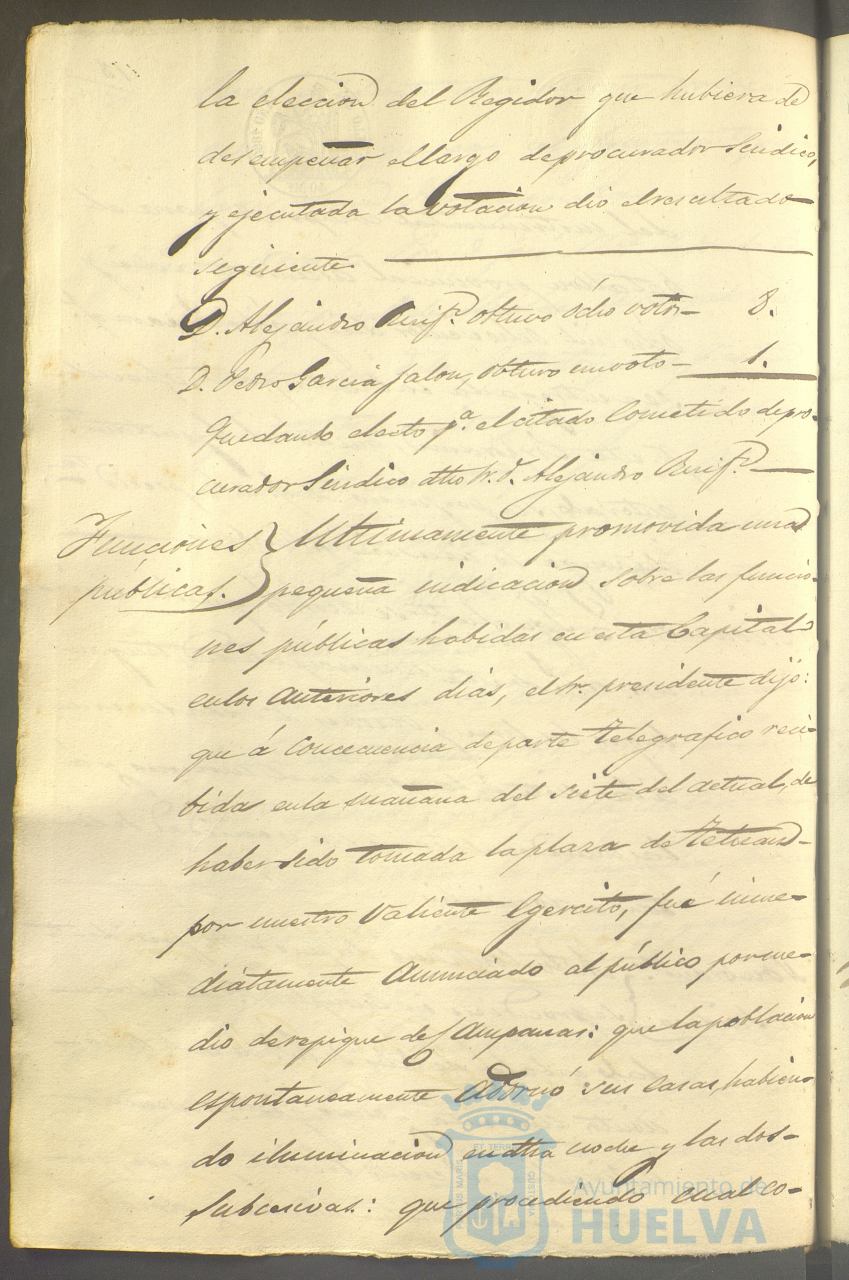 la eleccion del Regidor que hubiera de
desempeñar el cargo de procurador Sindico,
y ejecutada la votacion dio el resultado
siguiente.
D. Alejandro obtuvo ócho votos 8.
D. Pedro Garcia Jalon, obtuvo un voto 1.
Quedando electo pª. el citado Cometido de pro-
curador Sindico dho Sr. D. Alejandro
Funciones
públicas.
Ultimamente promovida una
pequeña indicacion sobre las funcio-
nes públicas habidas en esta Capital
en los anteriores dias, el Sr. presidente dijo:
que á concecuencia de parte telegrafico reci-
bida en la mañana del siete del actual, de
haber sido tomada la plaza de Tetuan
por nuestro Valiente Egercito, fué inme-
diatamente anunciado al público por me-
dio de repique de Campanas: que la poblacion
espontaneamente adornó sus casas, habien-
do iluminacion en dha noche y las dos
subcesivas: que procediendo cual co-
Ayuntamiento de
HUELVA